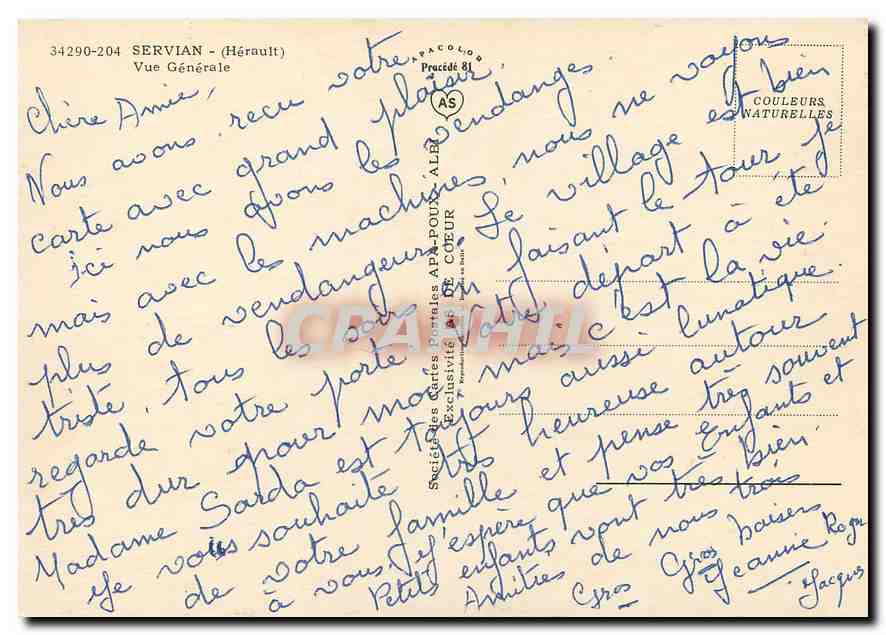 34290-204 SERVIAN - (Hérault)
Vue Générale
APACOLOR
Procédé 81
AS
COULEURS
NATURELLES
Société des Cartes Postales APA-POUX, ALBI
Exclusivité AS DE COEUR
CPAPHIL
Chère Amie,
Nous avons reçu votre
carte avec grand plaisir.
ici nous avons les vendanges.
mais avec les machines, nous ne voyons
plus de vendangeurs. Le village est bien
triste, tous les soirs en faisant le tour je
regarde votre porte. Votre départ à été
très dur pour moi mais c'est la vie.
Madame Sarda est toujours aussi lunatique.
Je vous souhaite très heureuse autour
de votre famille et pense très souvent
à vous. J'espère que vos Enfants et
Petits enfants vont très bien.
Amitiés de nous trois
Gros Gros baisers
Jeanne Roger
Jacques